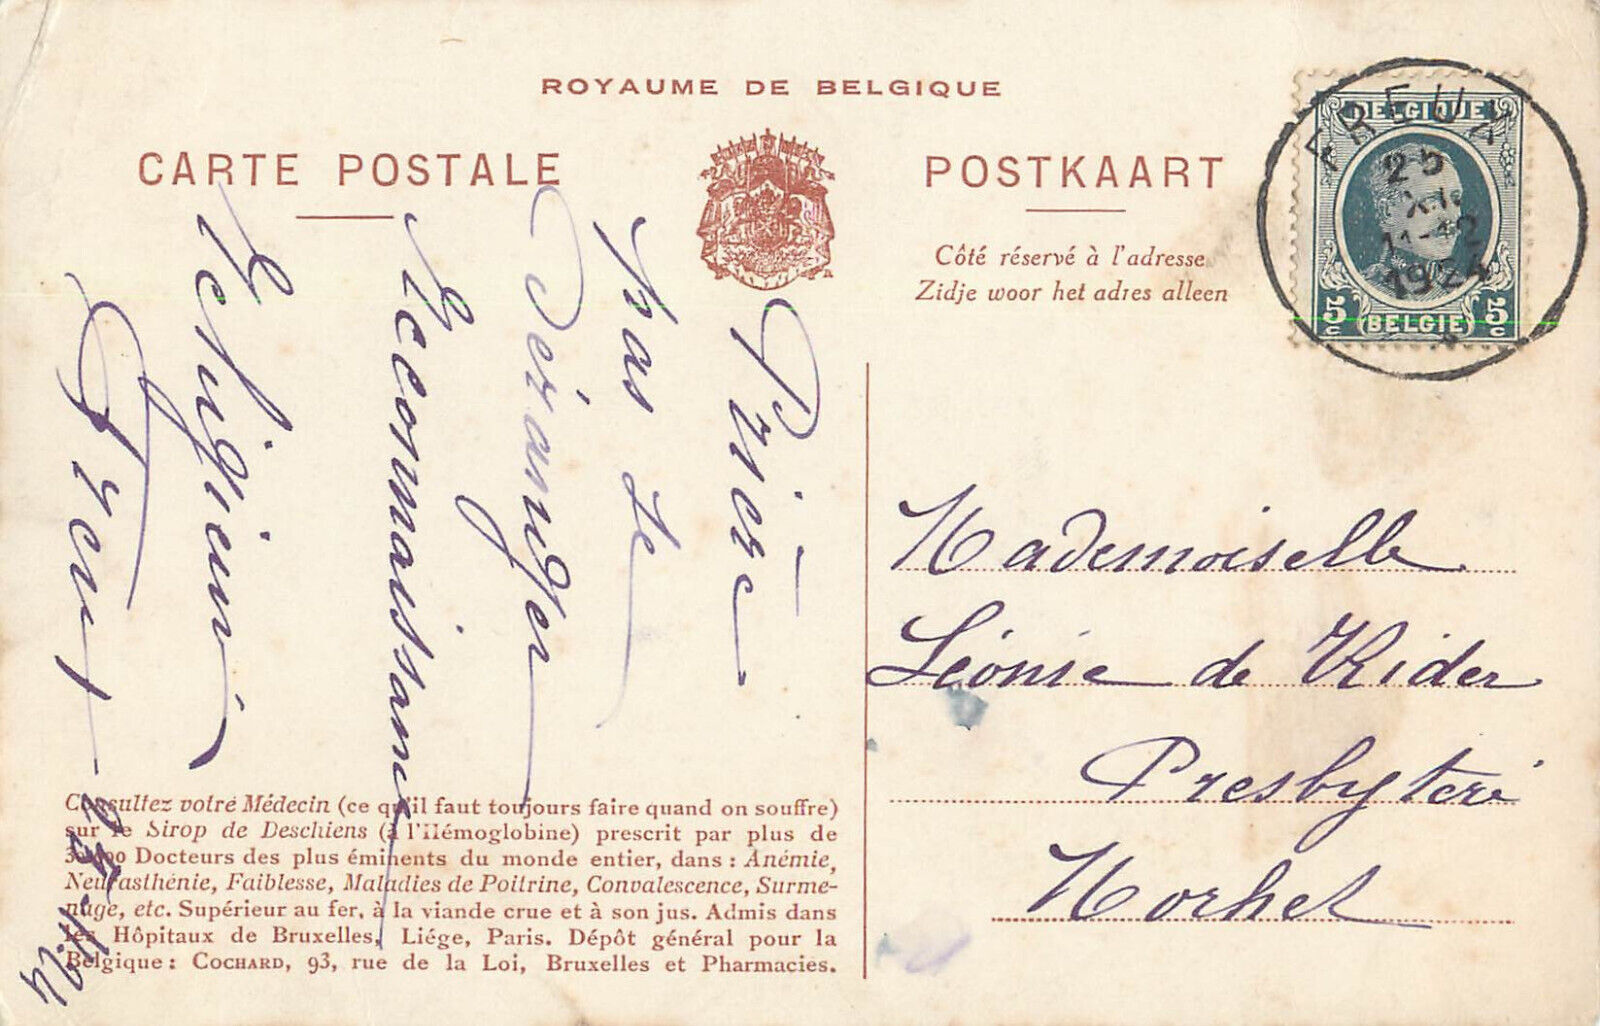 ROYAUME DE BELGIQUE
CARTE POSTALE
POSTKAART
Côté réservé à l'adresse
Zidje woor het adres alleen
BELGIQUE
5 c BELGIE 5 c
FREUX
25
XI
11-12
1924
Prière
pas de
Déranger
Reconnaissance
Freux
Mademoiselle
Léonie de Rider
Presbytère
Morhet
Consultez votre Médecin (ce qu'il faut toujours faire quand on souffre)
sur le Sirop de Deschiens (à l'Hémoglobine) prescrit par plus de
30,000 Docteurs des plus éminents du monde entier, dans : Anémie,
Neurasthénie, Faiblesse, Maladies de Poitrine, Convalescence, Surme-
nage, etc. Supérieur au fer, à la viande crue et à son jus. Admis dans
les Hôpitaux de Bruxelles, Liége, Paris. Dépôt général pour la
Belgique : COCHARD, 93, rue de la Loi, Bruxelles et Pharmacies.